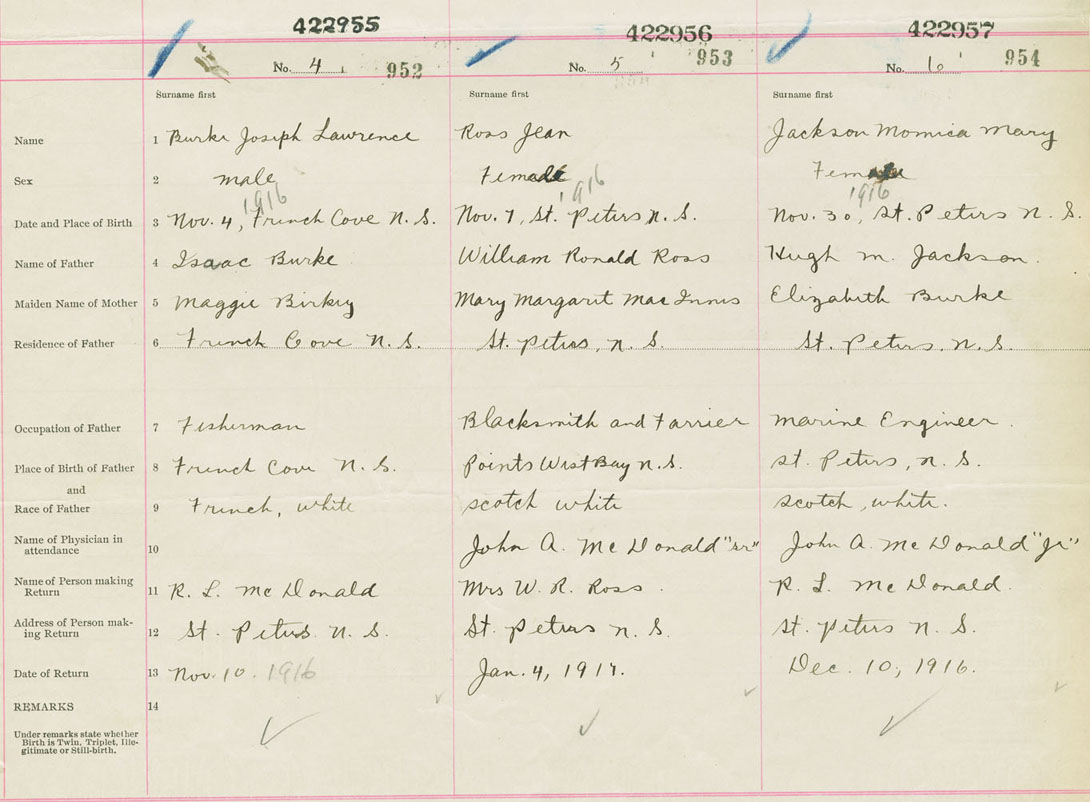 422955 422956 422957
No. 4 952 No. 5 953 No. 6 954
Surname first Surname first Surname first
Name 1 Burke Joseph Lawrence Ross Jean Jackson Monica Mary
Sex 2 male Female Female
1916 1916 1916
Date and Place of Birth 3 Nov. 4, French Cove N. S. Nov. 7, St. Peters N. S. Nov. 30, St. Peters N. S.
Name of Father 4 Isaac Burke William Ronald Ross Hugh M. Jackson.
Maiden Name of Mother 5 Maggie Mary Margaret MacInnis Elizabeth Burke
Residence of Father 6 French Cove N. S. St. Peters, N. S. St. Peters, N. S.
Occupation of Father 7 Fisherman Blacksmith and Farrier Marine Engineer.
Place of Birth of Father 8 French Cove N. S. Points West Bay N. S. St. Peters, N. S.
and
Race of Father 9 French, white scotch white scotch, white.
Name of Physician in
attendance 10 John A. McDonald "sr" John A. McDonald "Jr"
Name of Person making
Return 11 R. L. McDonald Mrs W. R. Ross. R. L. McDonald.
Address of Person mak-
ing Return 12 St. Peters N. S. St. Peters N. S. St. Peters N. S.
Date of Return 13 Nov. 10. 1916 Jan. 4, 1917. Dec. 10, 1916.
REMARKS 14
Under remarks state whether
Birth is Twin, Triplet, Ille-
gitimate or Still-birth.